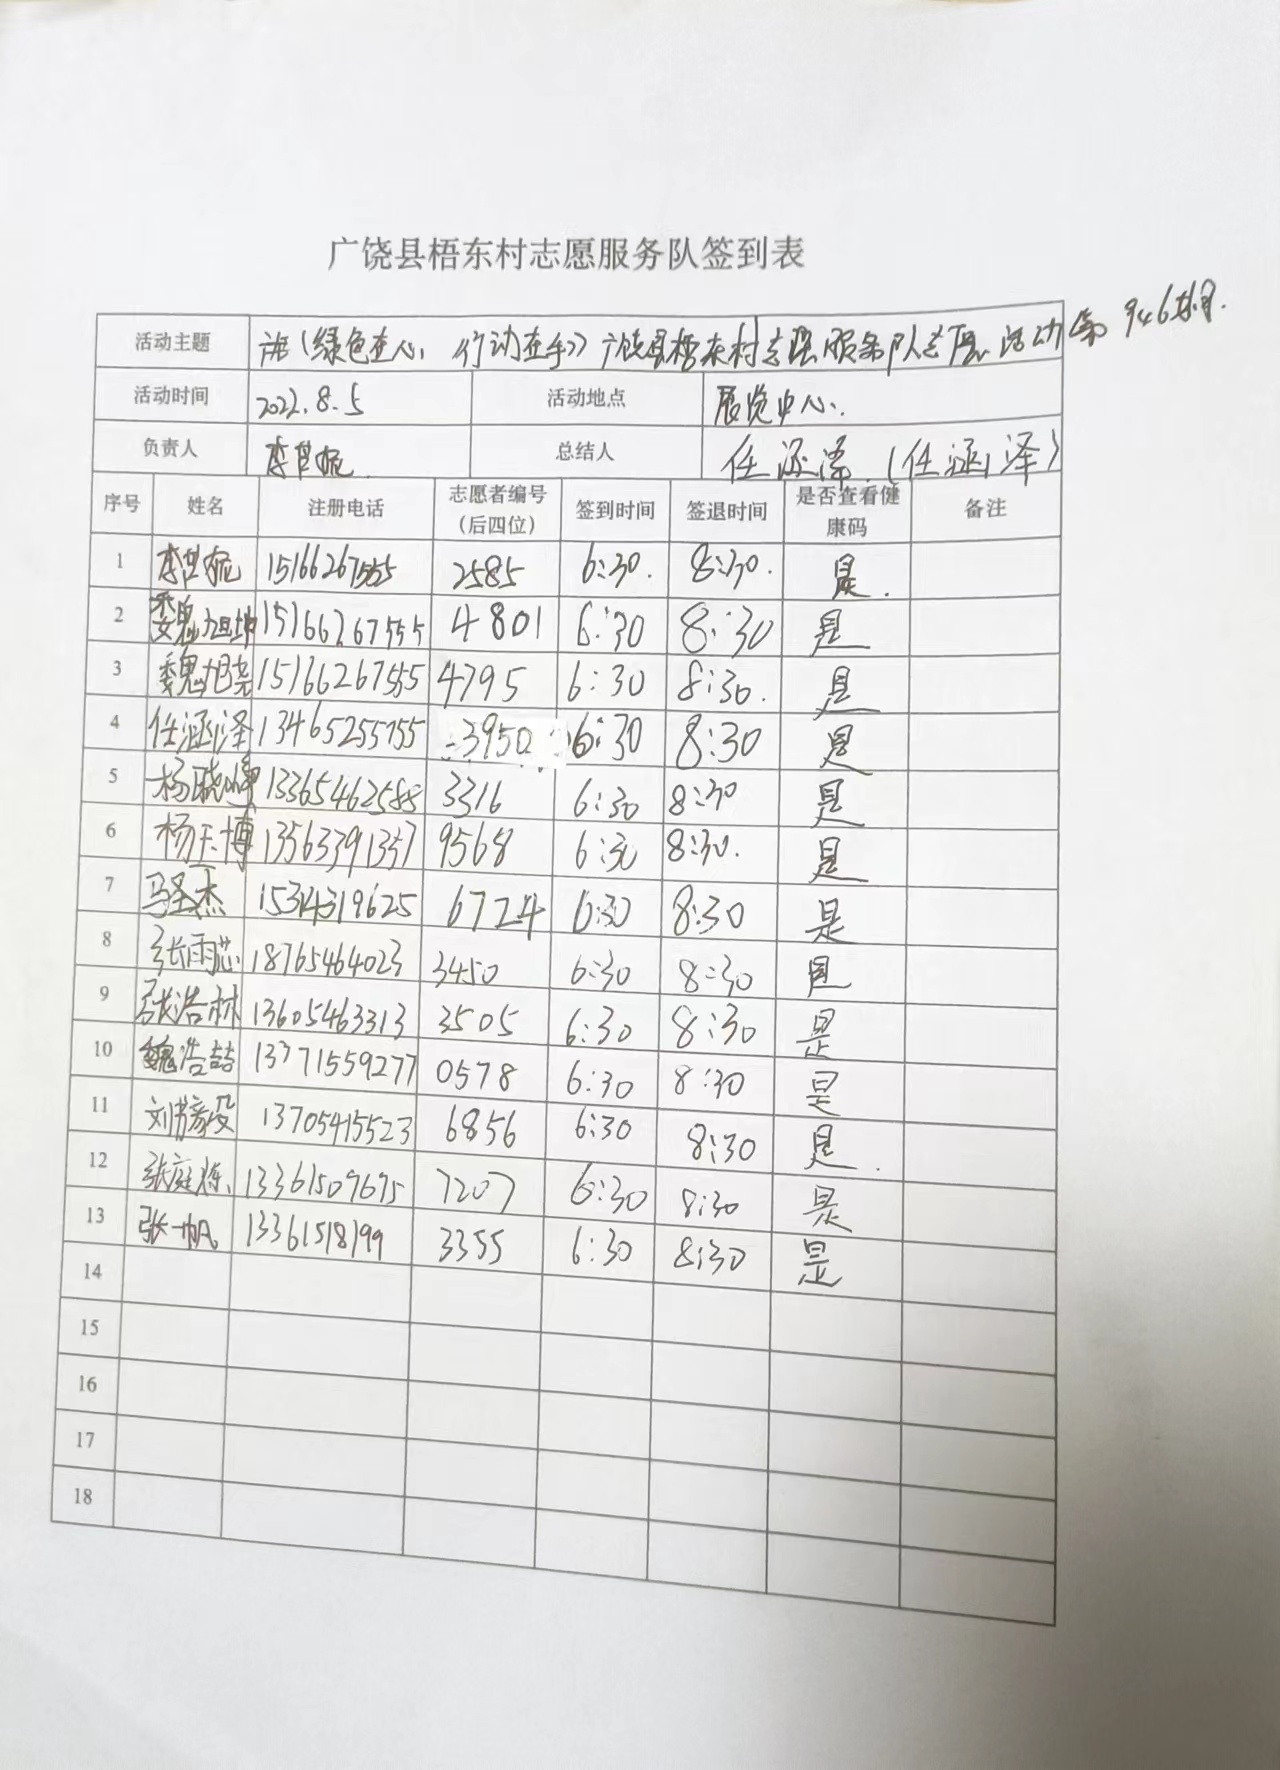 广饶县梧东村志愿服务队签到表
活动主题 《绿色在心，行动在手》广饶县梧东村志愿服务队志愿活动第946期.
活动时间 2022.8.5 活动地点 展览中心.
负责人 总结人 任涵泽 (任涵泽)
序号 姓名 注册电话 志愿者编号（后四位） 签到时间 签退时间 是否查看健康码 备注
1 15166267555 2585 6:30. 8:30. 是.
2 魏旭坤 15166267555 4801 6:30 8:30 是
3 魏旭尧 15166267555 4795 6:30 8:30. 是
4 任涵泽 13465255755 3950 6:30 8:30 是
5 杨晓峰 13365462588 3316 6:30 8:30 是
6 杨天博 13563391357 9568 6:30 8:30. 是
7 马圣杰 15314319625 6724 6:30 8:30 是
8 张雨芯 18765464023 3450 6:30 8:30 是
9 张浩林 13605463313 3505 6:30 8:30 是
10 魏浩喆 13371559277 0578 6:30 8:30 是
11 13705415523 6856 6:30 8:30 是.
12 张庭烁 13361509675 7207 6:30 8:30 是
13 张一帆 13361518199 3355 6:30 8:30 是
14
15
16
17
18